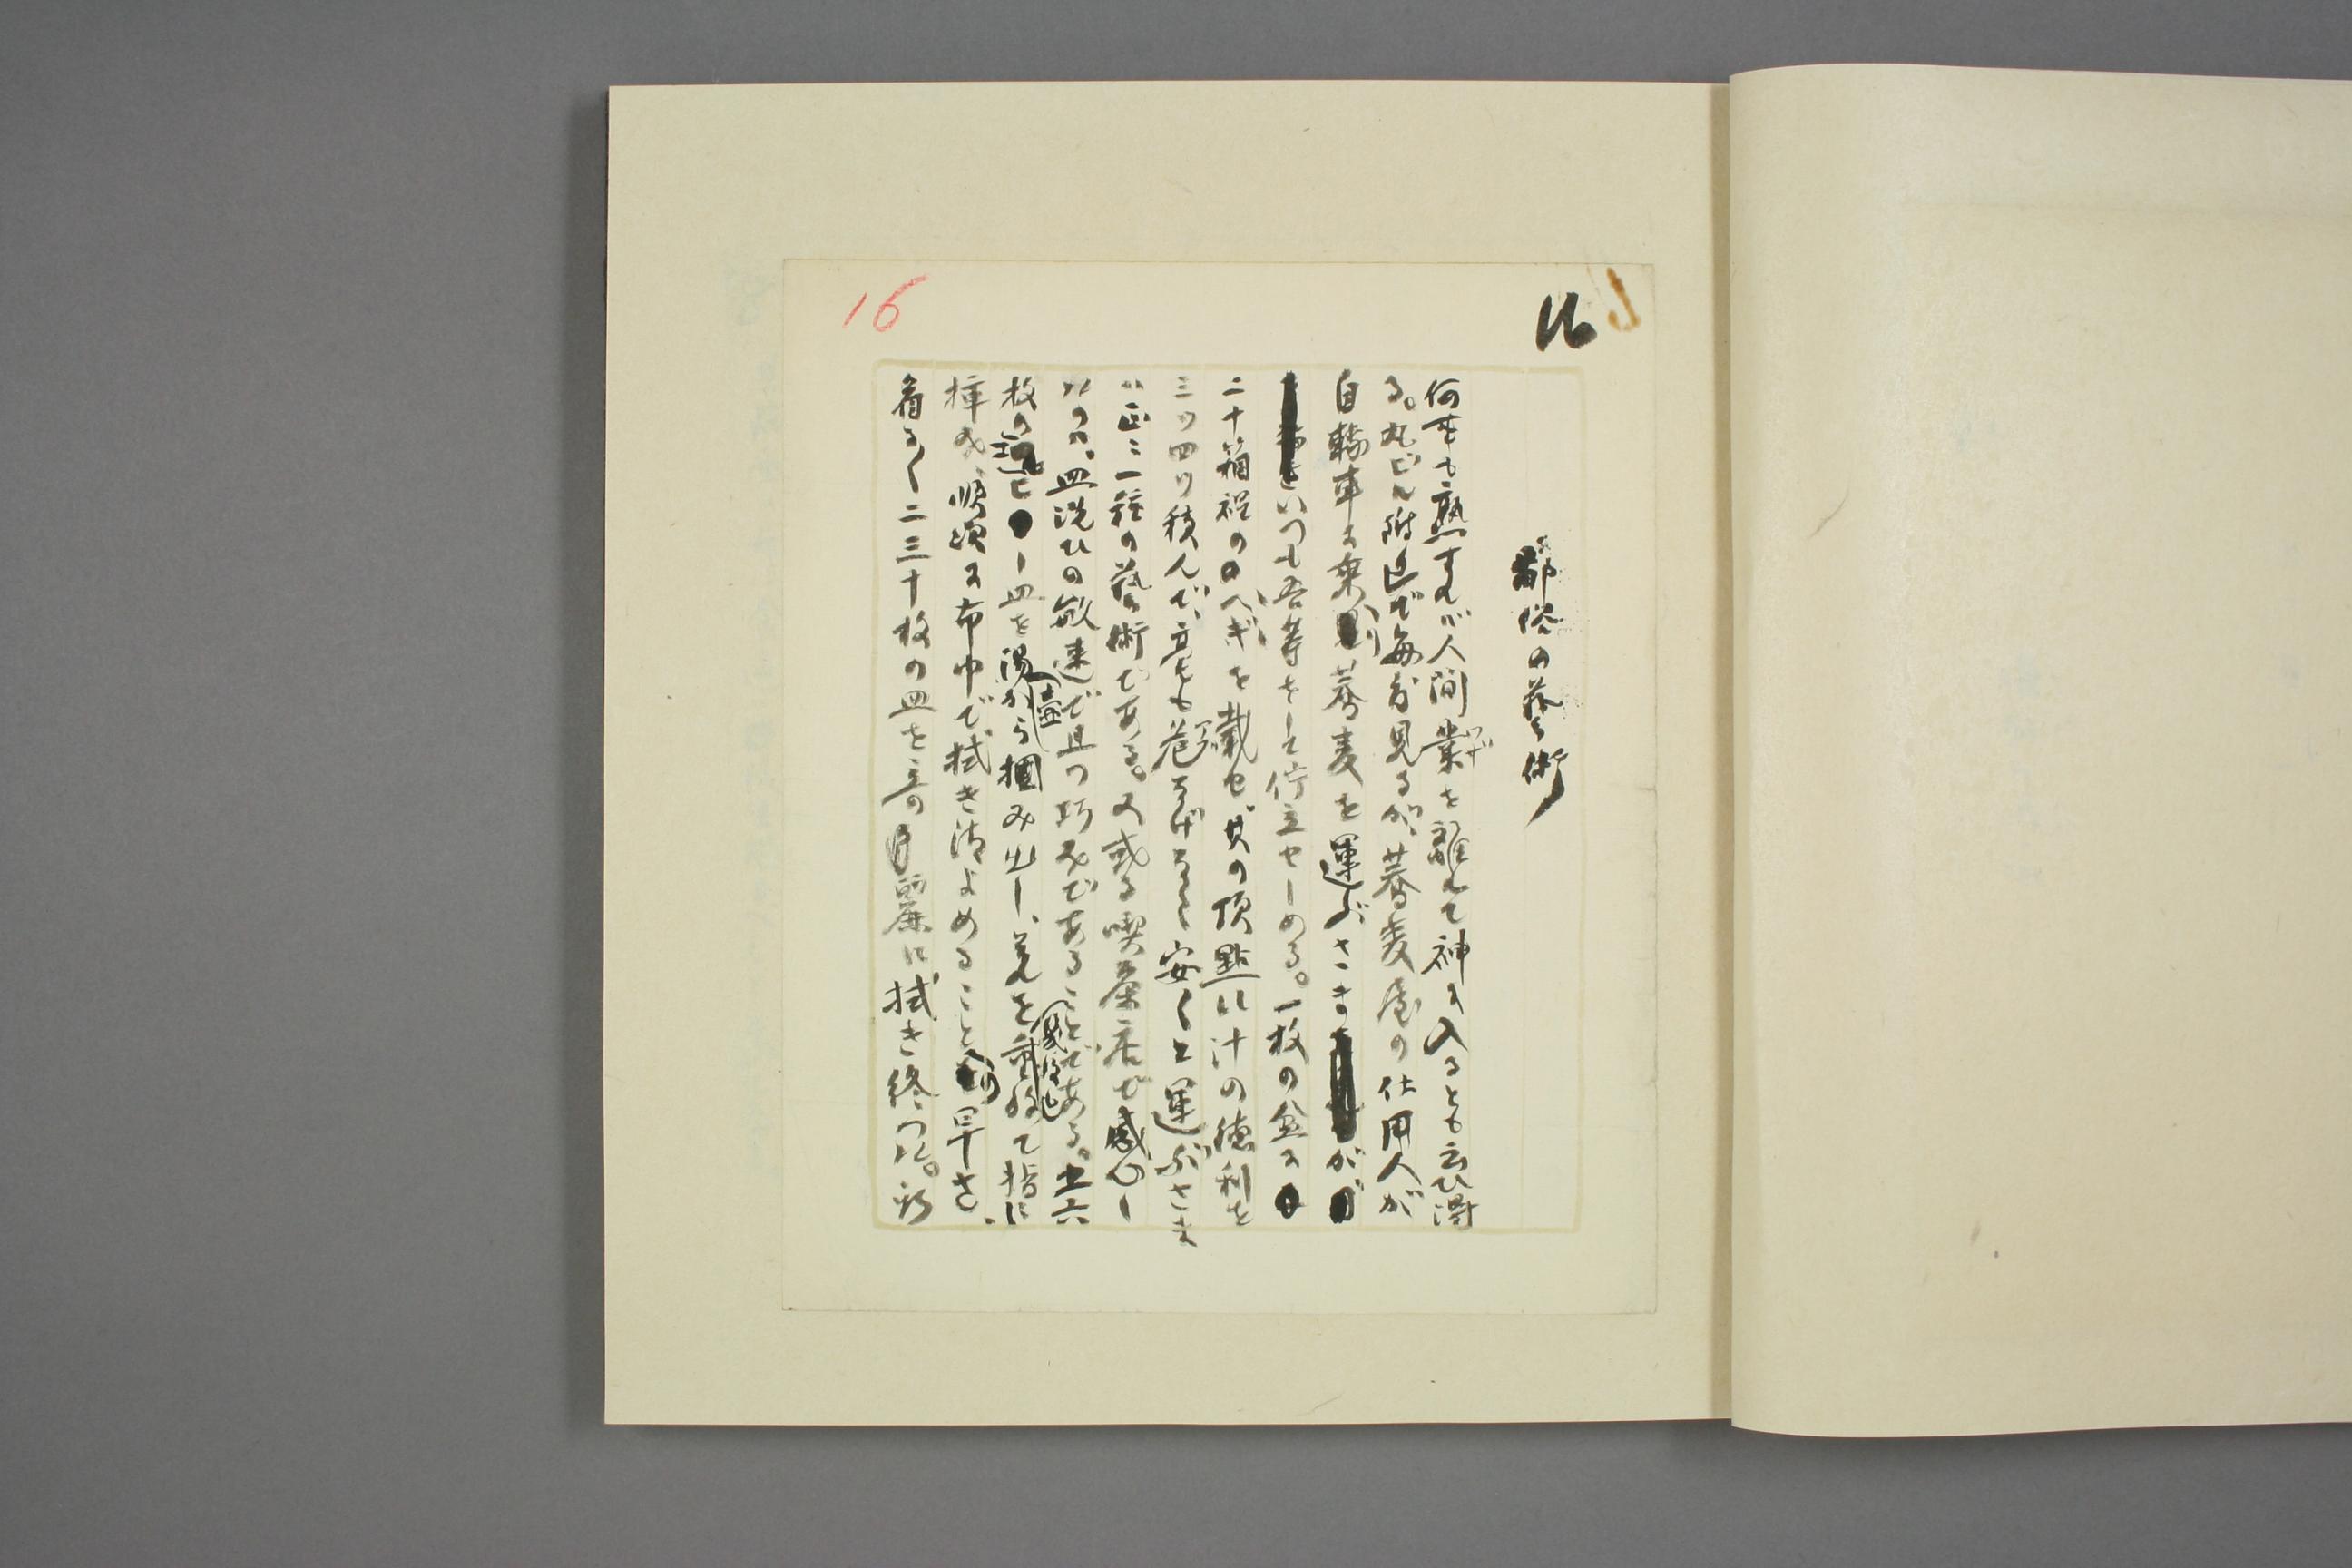 16
16
都俗の藝術
何事も熟すれば人間業を離れて神に入るとも云ひ得
る。丸ビル附近で毎度見るが、蕎麦屋の仕用人が
自轉車に乗り蕎麦を運ぶさまが
いつも吾等をして佇立せしめる。一枚の盆に
二十箱程のへぎを載せ、其の頂點に汁の徳利を
三ツ四ツ積んで、毫も危なげなく安々と運ぶさま
は正に一種の藝術である。又或る喫茶店で感心し
たのは、皿洗ひの敏速で且つ巧みであることである。十五六
枚の皿を湯壺から掴み出し、
挿み、順次に布巾で拭き清よめることの早さ、
看る〱二三十枚の皿を奇麗に拭き終つた。